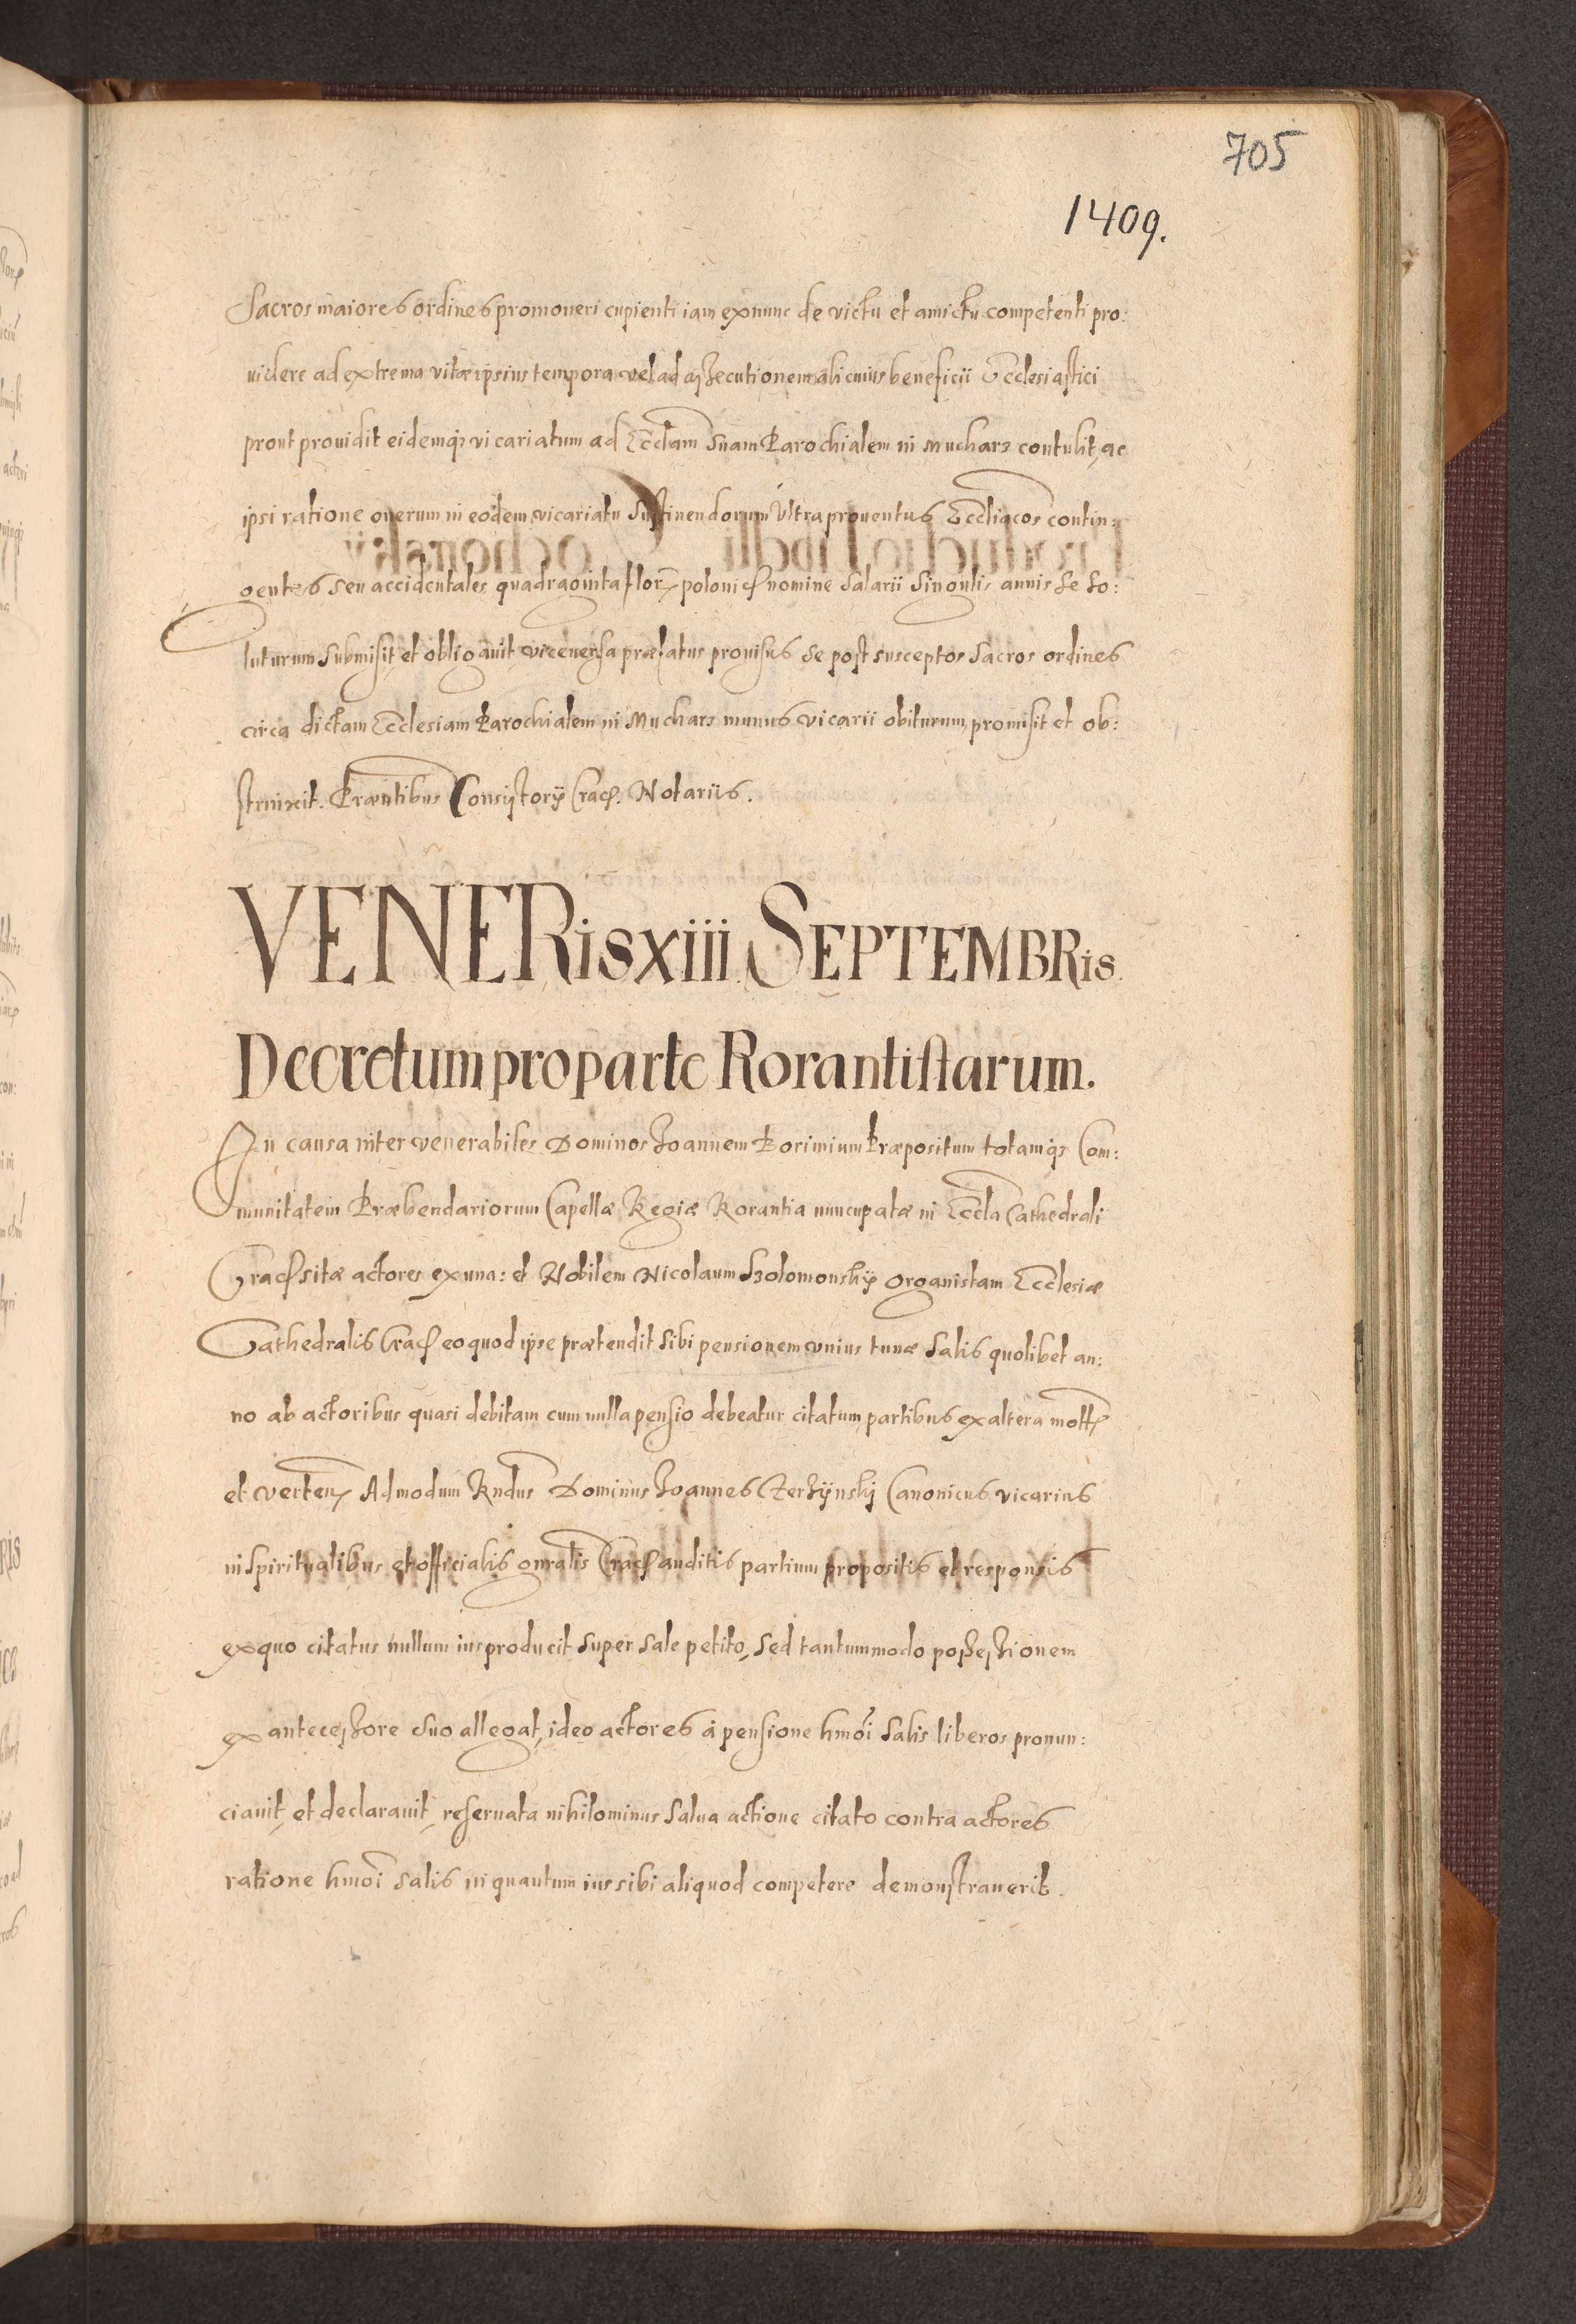 705
1409.
Sacros maiores ordines promoueri cupienti iam ex nunc de victu et amictu competenti pro:
uidere ad extrema vitæ ipsius tempora vel ad assecutionem alicuius beneficii Ecclesiastici
prout prouidit eidemq₃ vicariatum ad Eccłam Suam Parochialem in Mucharz contulit, ac
ipsi ratione onerum in eodem vicariatu Sustinendorum Vltra prouentus Eccłiacos contin:
gentes seu accidentales quadraginta flor polonic nomine Salarii Singulis annis se so:
luturum Submisit et obligauit, viceuersa præfatus prouisus se post susceptos Sacros ordines
circa dictam Ecclesiam Parochialem in Mucharz munus vicarii obiturum, promisit et ob:
strinxit. Præntibus Consistorÿ Crac. Notariis.
VENERis xiii SEPTEMBRis.
Decretum pro parte Rorantistarum.
In causa inter venerabiles Dominos Joannem Borimium Præpositum totamq₃ Com:
munitatem Præbendariorum Capellæ Regiæ Rorantia nuncupatæ in Eccła Cathedrali
Crac sitæ actores ex una: et Nobilem Nicolaum Szolomonskÿ Organistam Ecclesiæ
Cathedralis Crac eo quod ipse prætendit sibi pensionem vnius tunæ Salis quolibet an:
no ab actoribus quasi debitam cum nulla pensio debeatur citatum partibus ex altera mott
et verten Admodum Rndus Dominus Joannes Canonicus vicarius
in Spiritualibus et officialis gnralis Crac auditis partium propositis et responsis
ex quo citatus nullum ius producit super sale petito, sed tantummodo possessionem
ex antecessore Suo allegat, ideo actores à pensione hmoi Salis liberos pronun:
ciauit, et declarauit, reseruata nihilominus Salua actione citato contra actores
ratione hmoi Salis in quantum ius sibi aliquod competere demonstrauerit.